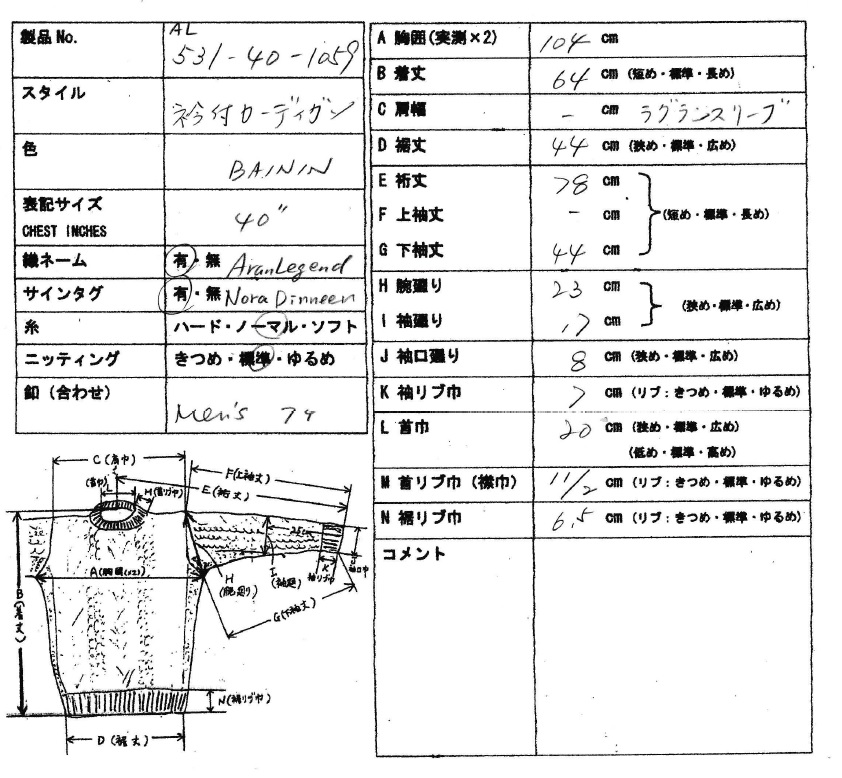 製品No. AL
531-40-1059
スタイル 衿付カーディガン
色 BAININ
表記サイズ
CHEST INCHES 40"
織ネーム 有・無 AranLegend
サインタグ 有・無 Nora Dinneen
糸 ハード・ノーマル・ソフト
ニッティング きつめ・標準・ゆるめ
釦（合わせ） Men's 7ケ
A 胸囲(実測×2) 104 cm
B 着丈 64 cm (短め・標準・長め)
C 肩幅 - cm ラグランスリーブ
D 裾丈 44 cm (狭め・標準・広め)
E 裄丈 78 cm
F 上袖丈 - cm (短め・標準・長め)
G 下袖丈 44 cm
H 腕廻り 23 cm (狭め・標準・広め)
I 袖廻り 17 cm
J 袖口廻り 8 cm (狭め・標準・広め)
K 袖リブ巾 7 cm (リブ：きつめ・標準・ゆるめ)
L 首巾 20 cm (狭め・標準・広め)
(低め・標準・高め)
M 首リブ巾（襟巾） 11/2 cm (リブ：きつめ・標準・ゆるめ)
N 裾リブ巾 6.5 cm (リブ：きつめ・標準・ゆるめ)
コメント
C(肩巾)
F(上袖丈)
E(裄丈)
(首巾)
L
M(首リブ巾)
A(胸囲(×2))
B(着丈)
H
(腕廻り)
I
(袖廻)
K
袖リブ巾
J
袖口巾
G(下袖丈)
N(裾リブ巾)
D(裾丈)